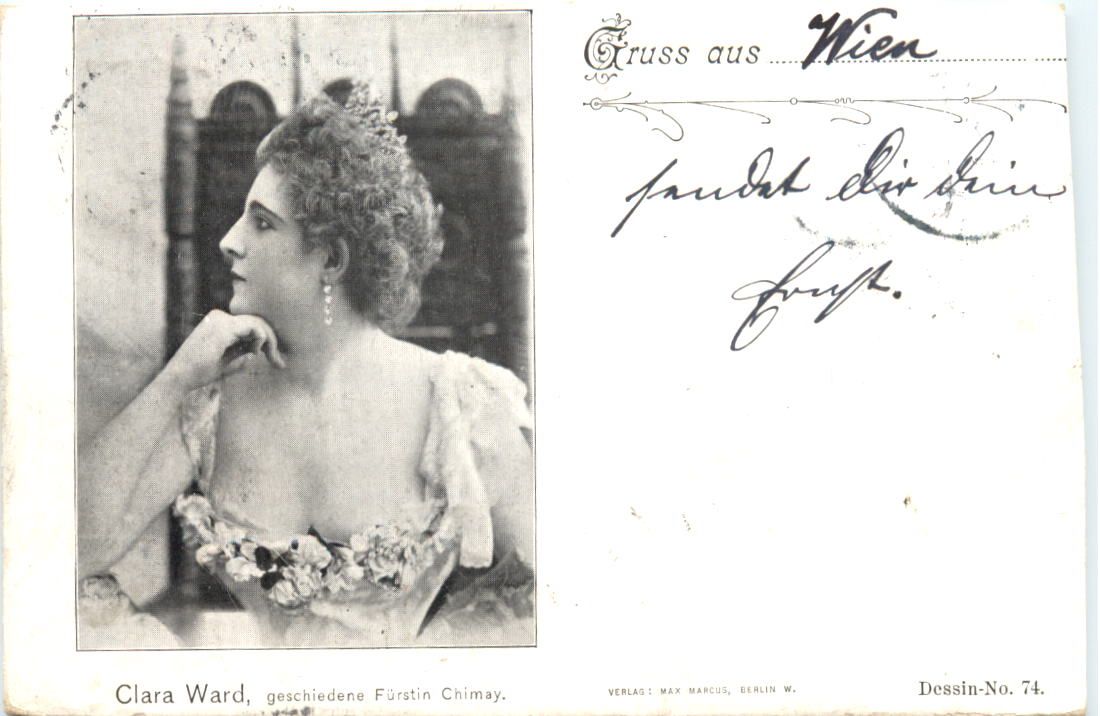 Gruss aus Wien
sendet Dir dein
Ernst.
Clara Ward, geschiedene Fürstin Chimay.
VERLAG: MAX MARCUS, BERLIN W.
Dessin-No. 74.